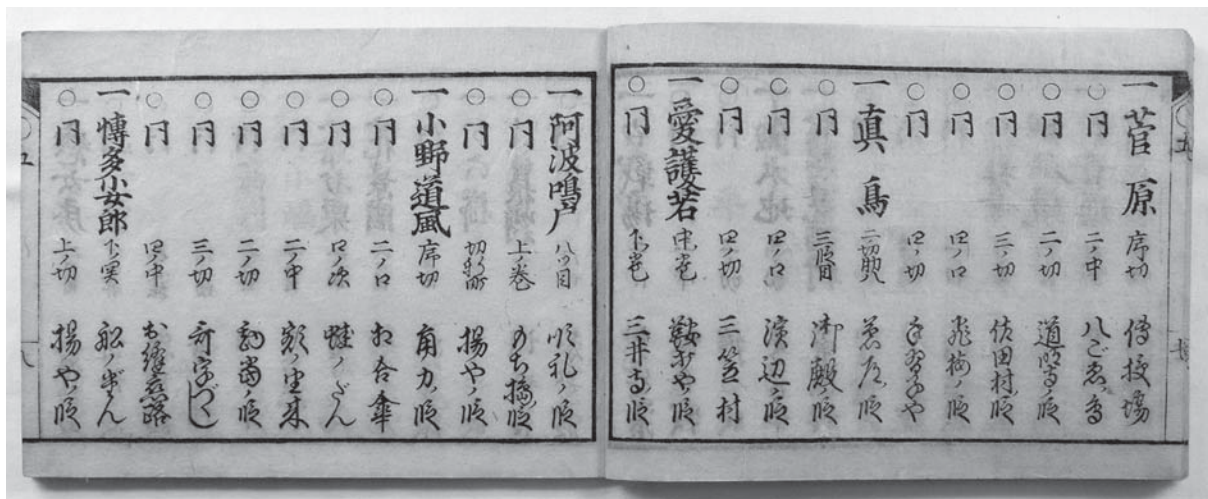 一 菅原 序切 傳授場
○ 同 二ノ中 八ごゑ鳥
○ 同 二ノ切 道明寺ノ段
○ 同 三ノ切 佐田村ノ段
○ 同 四ノ口 飛梅ノ段
○ 同 四ノ切 手習子や
一 真鳥 ノ段
○ 同 三段目 御殿ノ段
○ 同 四ノ口 濱辺ノ段
○ 同 四ノ切 三笠村
一 愛護若 中ノ巻
○ 同 下ノ巻 三井寺ノ段
一 阿波鳴戸 八ツ目 順礼ノ段
○ 同 上ノ巻
○ 同 切新町 揚やノ段
一 小野道風 序切 角力ノ段
○ 同 二ノ口 相合傘
○ 同 口ノ次 蛙ノだん
○ 同 二ノ中 額ノ由来
○ 同 二ノ切 勘當ノ段
○ 同 三ノ切
○ 同 四ノ中 お縫恋路
一 博多小女郎 舩ノだん
○ 同 上ノ切 揚やノ段